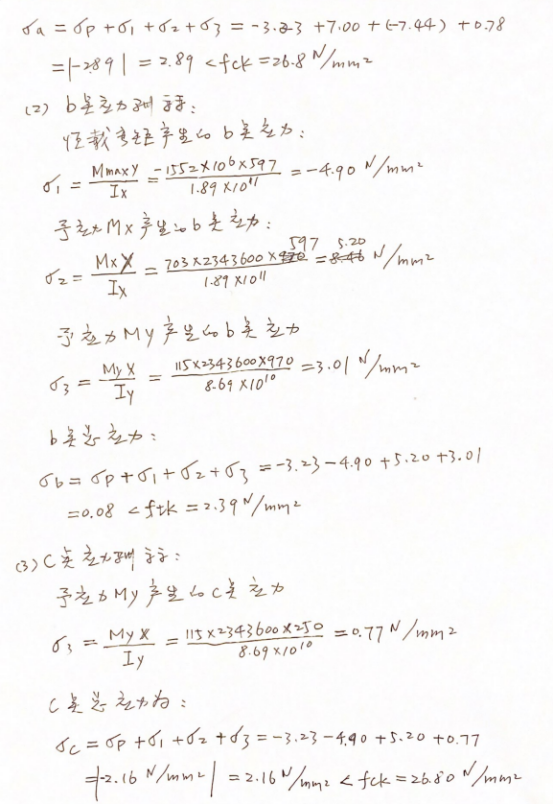 σa = σP + σ1 + σ2 + σ3 = -3.23 + 7.00 + (-7.44) + 0.78
= |-2.89| = 2.89 < fck = 26.8 N/mm²
(2) b点应力验算:
恒载弯矩产生的b点应力:
σ1 = Mmax y / Ix = -1552×10⁶×597 / 1.89×10¹¹ = -4.90 N/mm²
予应力Mx产生的b点应力:
σ2 = Mx y / Ix = 703×2343600×597 / 1.89×10¹¹ = 5.20 N/mm²
予应力My产生的b点应力
σ3 = My x / Iy = 115×2343600×970 / 8.69×10¹⁰ = 3.01 N/mm²
b点总应力:
σb = σP + σ1 + σ2 + σ3 = -3.23 - 4.90 + 5.20 + 3.01
= 0.08 < ftk = 2.39 N/mm²
(3) C点应力验算:
予应力My产生的C点应力
σ3 = My x / Iy = 115×2343600×250 / 8.69×10¹⁰ = 0.77 N/mm²
C点总应力为:
σc = σP + σ1 + σ2 + σ3 = -3.23 - 4.90 + 5.20 + 0.77
= |-2.16 N/mm²| = 2.16 N/mm² < fck = 26.80 N/mm²